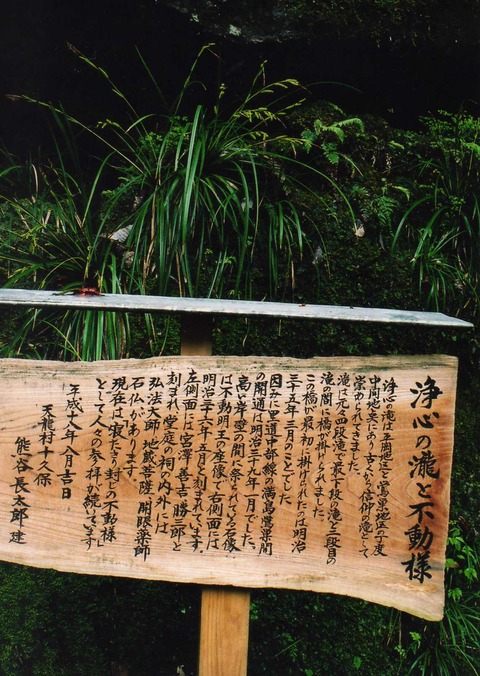 浄心の瀧と不動様
浄心の滝は平岡地区と鶯巣地区の丁度
中間地点にあり古くから信仰の滝として
崇められてきました。
滝は大々四段滝で最下段の滝と二段目の
滝の間に橋が掛けられました
この橋が最初に掛けられたのは明治
三十五年三月のことでした
因みに里道中部線の満島鶯巣間
の開通は明治三十九年一月でした。
高い岸壁の間に祭られている石像
は不動明王の座像で右側面には
明治三十六年五月と刻まれています。
左側面には宮澤善吉 勝三郎と
刻まれ堂庭の祠の内外には
弘法大師 地蔵菩薩 開眼薬師
石仏があります。
現在は「寝たきり封じの不動様」
として人々の参拝が続いています
平成十八年八月吉日
天龍村十久保
熊谷長太郎 建